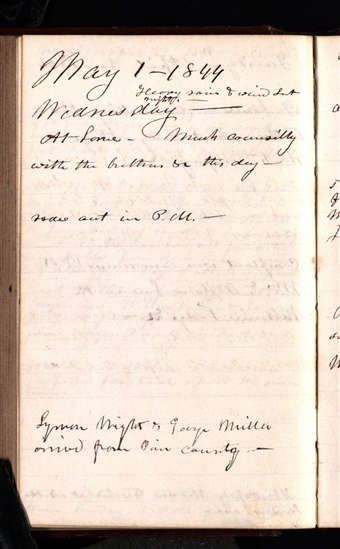 May 1 - 1844
Heavy rain & wind last
night.
Wednesday
At home - Much counsilly
with the brethren &c this day -
rode out in P.M. -
Lyman Wight & George Miller
arrived from Pine county -